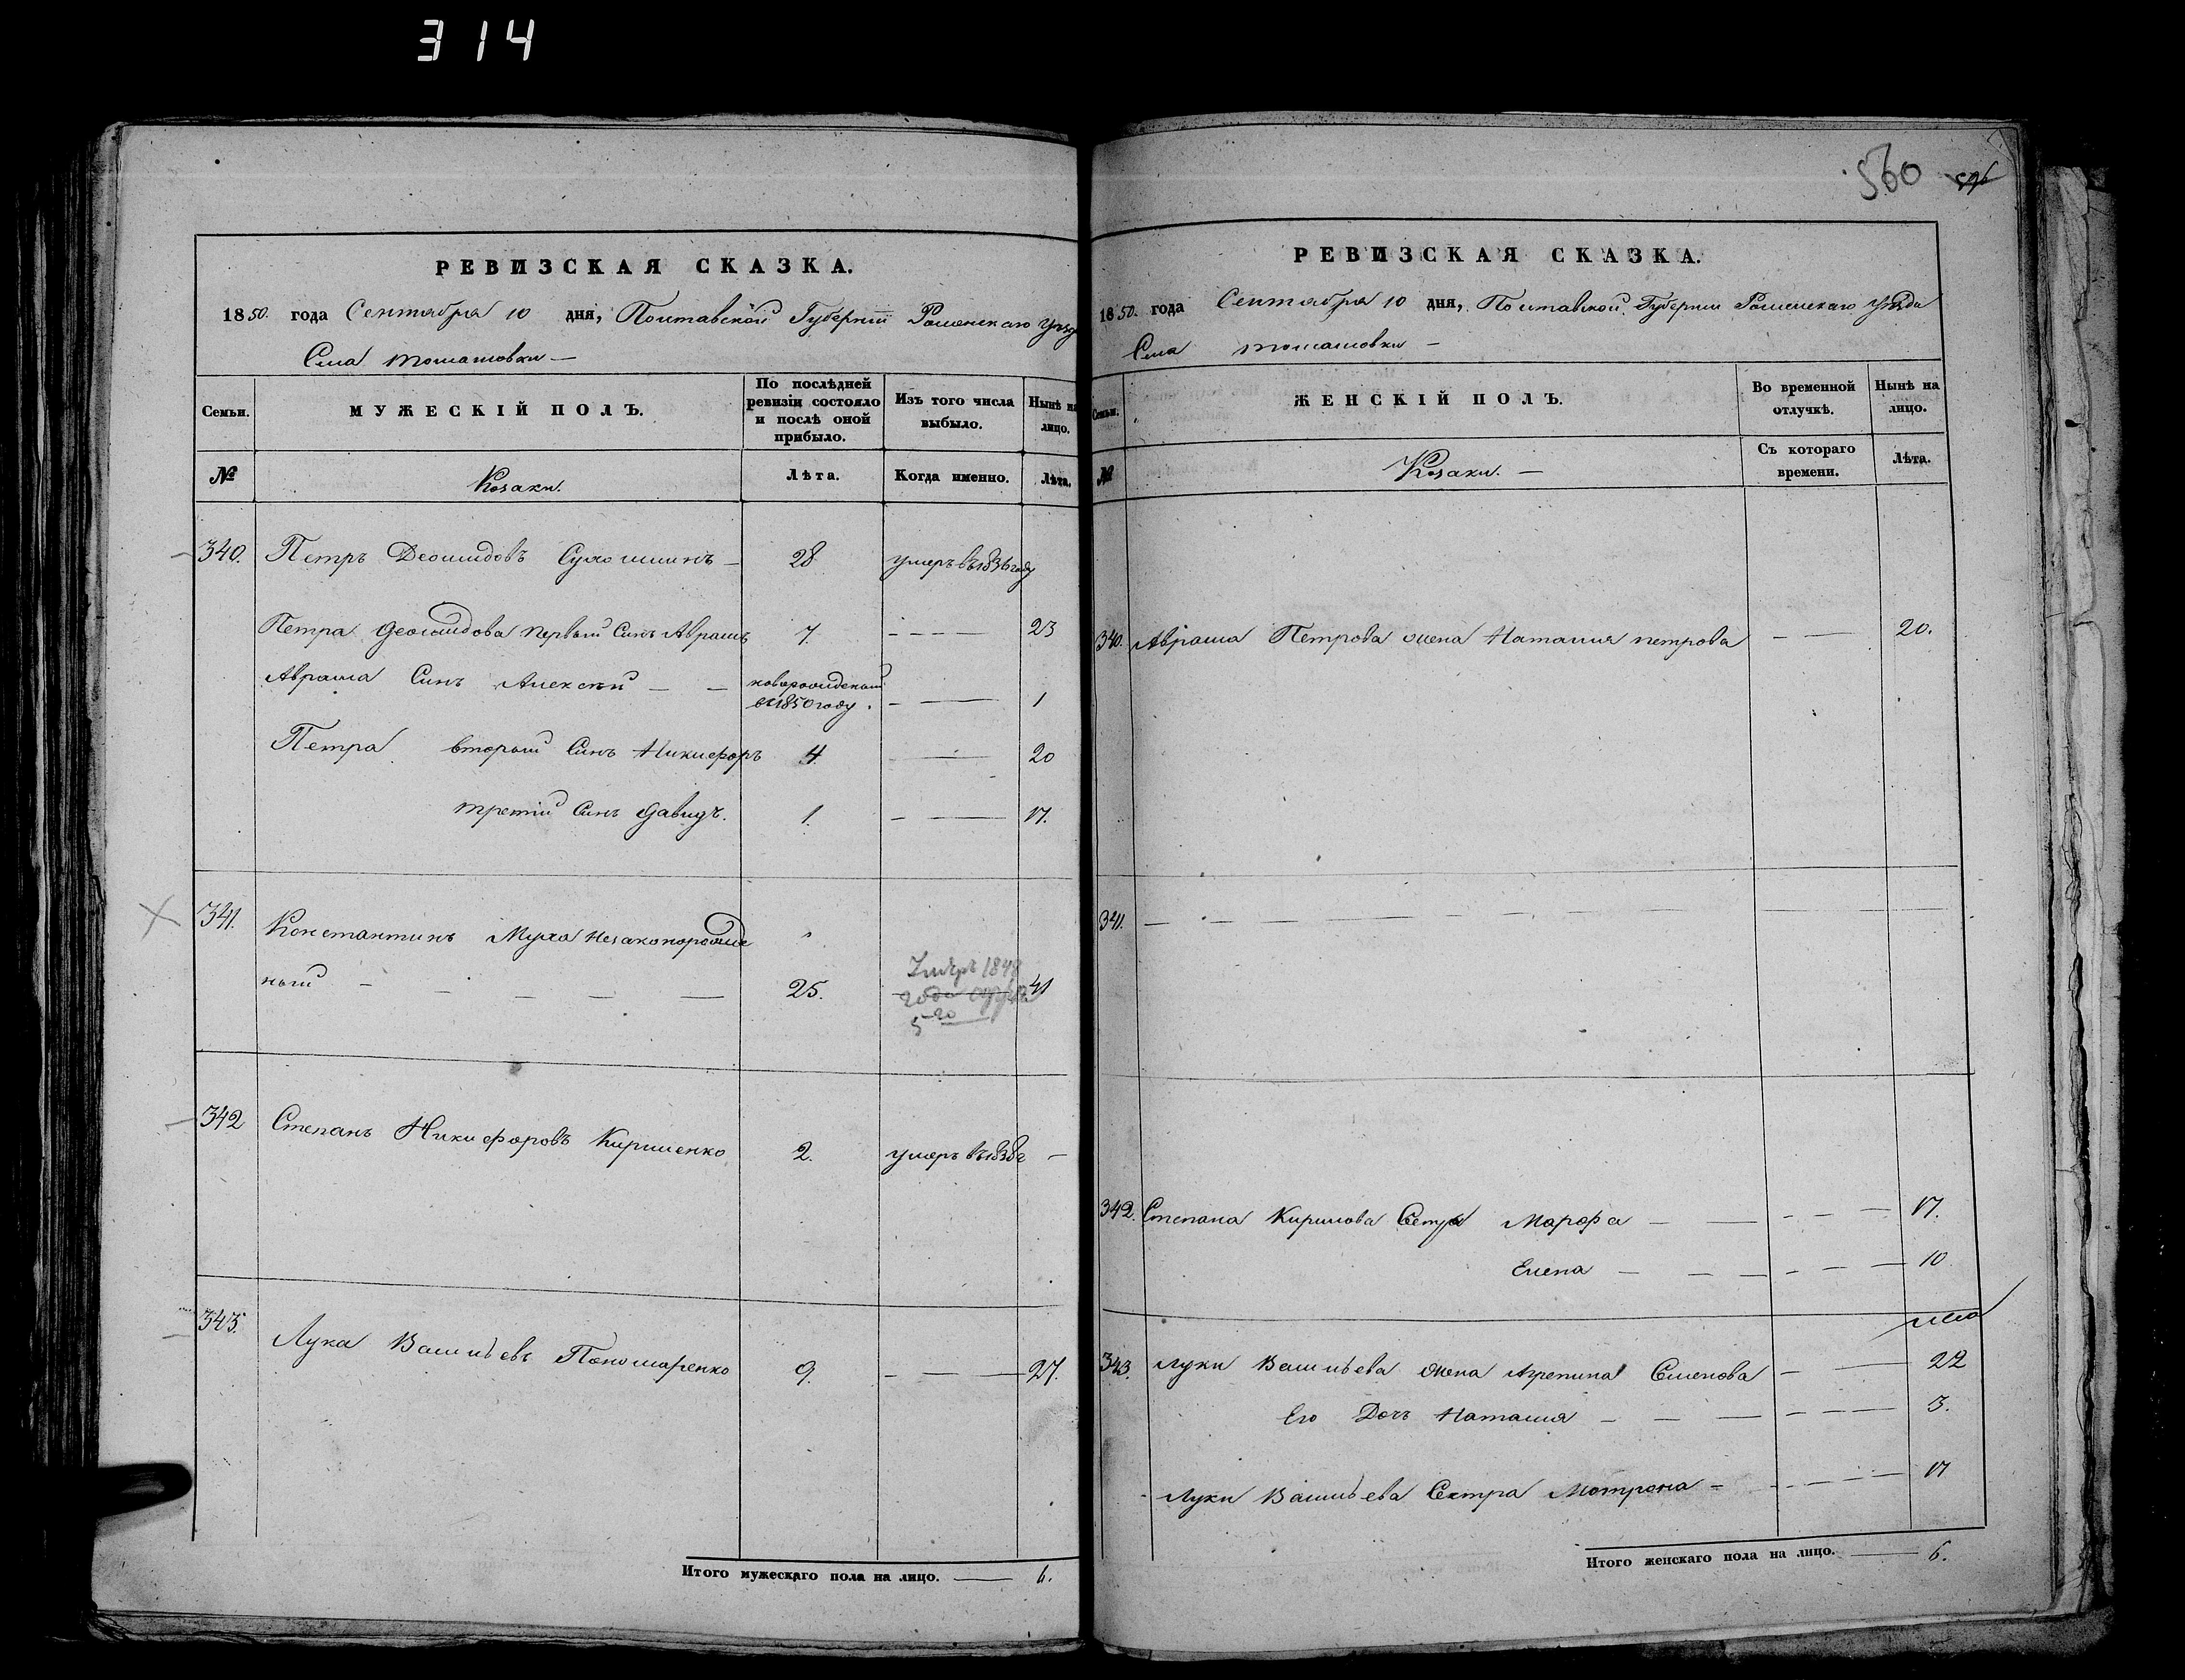 314
560
596
РЕВИЗСКАЯ СКАЗКА.
1850. года Сентября 10 дня, Полтавской Губерніи Роменскаго Уезд
Села Томашовки —
Семьи.
МУЖЕСКІЙ ПОЛЪ.
По послѣдней ревизіи состояло и послѣ оной прибыло.
Изъ того числа выбыло.
Нынѣ на лицо.
№
Козаки.
Лѣта.
Когда именно.
Лѣта.
340. Петръ Деомидовъ Сухомлинъ — 28 умеръ въ 1836 году
Петра Деомидова первый Синъ Аврамъ 7. — — — 23
Аврама Синъ Алексѣй — — новорожденный въ 1850 году. — — 1
Петра второй Синъ Никифоръ 4 — 20
третій Синъ Давидъ. 1. — — 17.
341. Константинъ Муха незаконорожде
ный — — — — — 25. Умеръ 1848 года 5го 41
342 Степанъ Никифоровъ Кириленко 2. умеръ въ 1838г —
343. Лука Васильевъ Пономаренко 9. — — — 27.
Итого мужескаго пола на лицо. — 6.
РЕВИЗСКАЯ СКАЗКА.
1850. года Сентября 10 дня, Полтавской Губерніи Роменскаго Уезда
Села Томашовки —
Семьи.
ЖЕНСКІЙ ПОЛЪ.
Во временной отлучкѣ.
Нынѣ на лицо.
№
Козаки. —
Съ котораго времени.
Лѣта.
340. Аврама Петрова жена Наталия петрова — — 20.
341. — — — — — — — — — —
342. Степана Кирилова Сестра Марфа — — — — — 17.
Елена — — — — — — 10
343. Луки Васильева жена Агрепина Семенова — — 22
Его Дочъ Наталия — — — — — — 3.
Луки Васильева Сестра Мотрона — — — — 17
Итого женскаго пола на лицо. — 6.